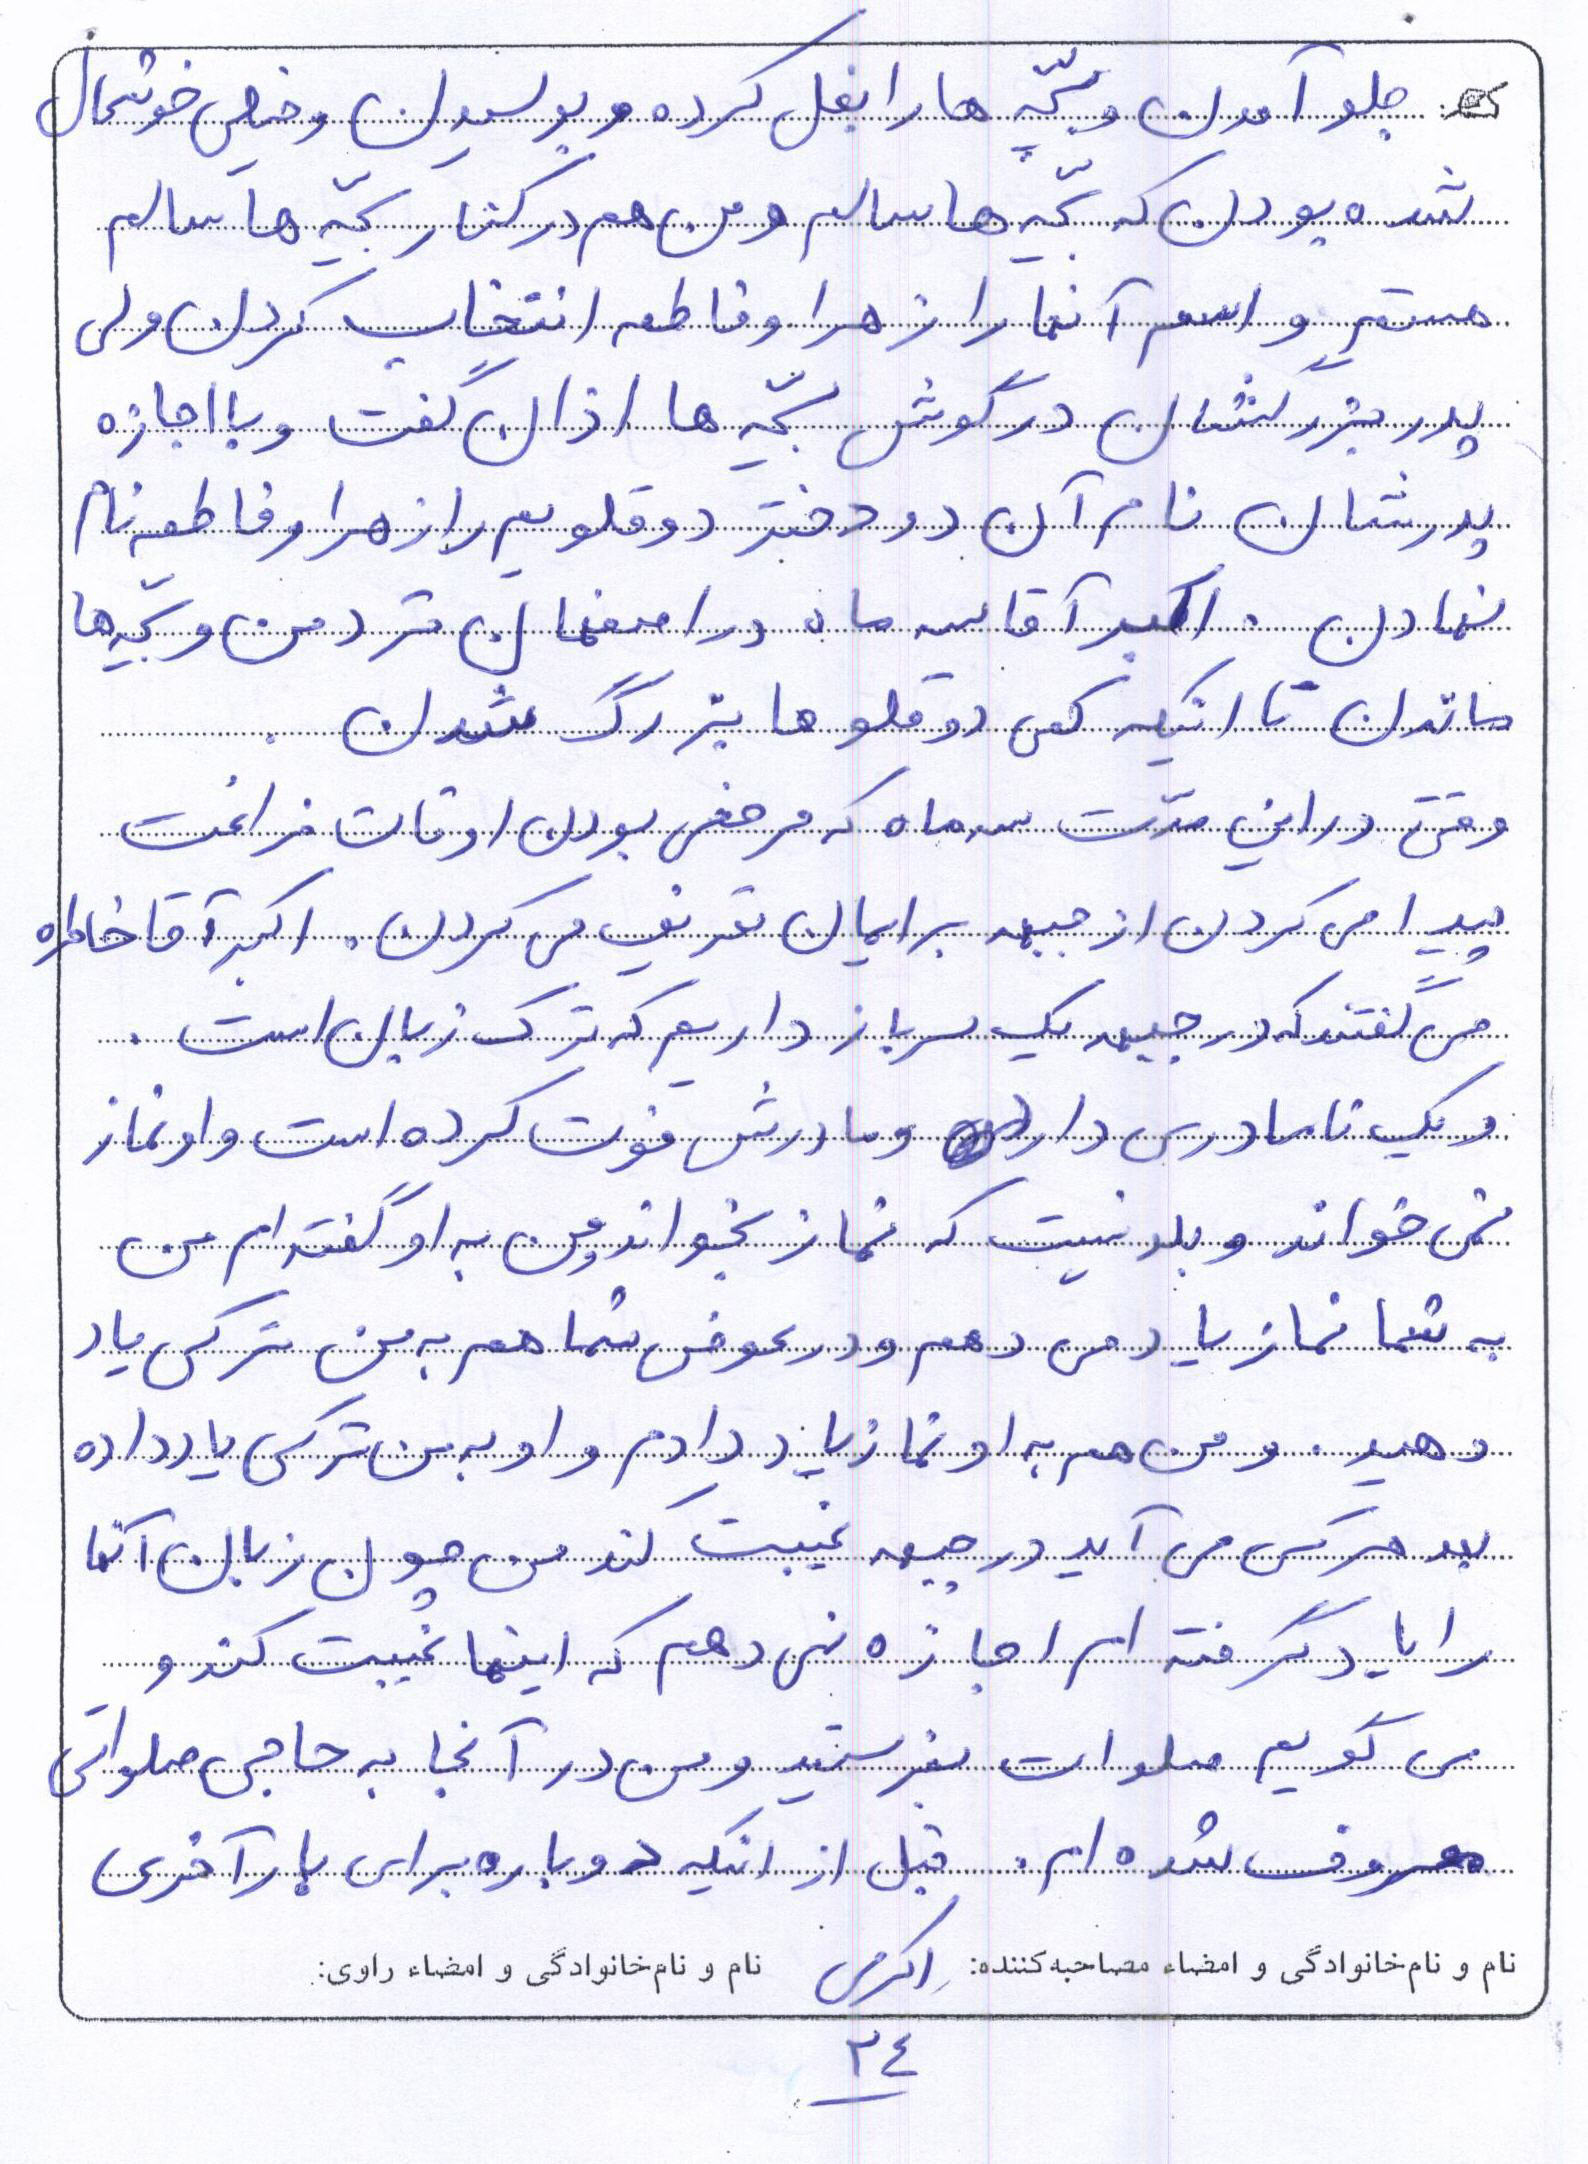 جلو آمدن و بچّه ها را بغل کرده و بوسیدن و خیلی خوشحال
شده بودن که بچّه ها سالم و من هم در کنار بچّه ها سالم
هستم و اسم آنها را زهرا و فاطمه انتخاب کردن ولی
پدر بزرگشان در گوش بچّه ها اذان گفت و با اجازه
پدرشان نام آن دو دختر دوقلویم را زهرا و فاطمه نام
نهادن . اکبر آقا سه ماه در اصفهان نزد من و بچّه ها
ماندن تا اینکه کمی دوقلو ها بزرگ شدن .
وقتی در این مدّت سه ماه که مرخصی بودن اوقات فراغت
پیدا می کردن از جبهه برایمان تعریف می کردن . اکبر آقا خاطره
می گفتند که در جبهه یک سرباز داریم که ترک زبان است .
و یک نامادری دارد و مادرش فوت کرده است و او نماز
نمی خواند و بلد نیست که نماز بخواند و من به او گفته ام من
به شما نماز یاد می دهم و در عوض شما هم به من ترکی یاد
دهید . و من هم به او نماز یاد دادم و او به من ترکی یاد داده
بعد هر کس می آید در جبهه غیبت کند من چون زبان آنها
را یاد گرفته ام اجازه نمی دهم که اینها غیبت کند و
می گویم صلوات بفرستید و من در آنجا به حاجی صلواتی
معروف شده ام . قبل از اینکه دوباره برای بار آخری
نام و نام‌خانوادگی و امضاء مصاحبه‌کننده: اکرمی نام و نام‌خانوادگی و امضاء راوی:
۲۴